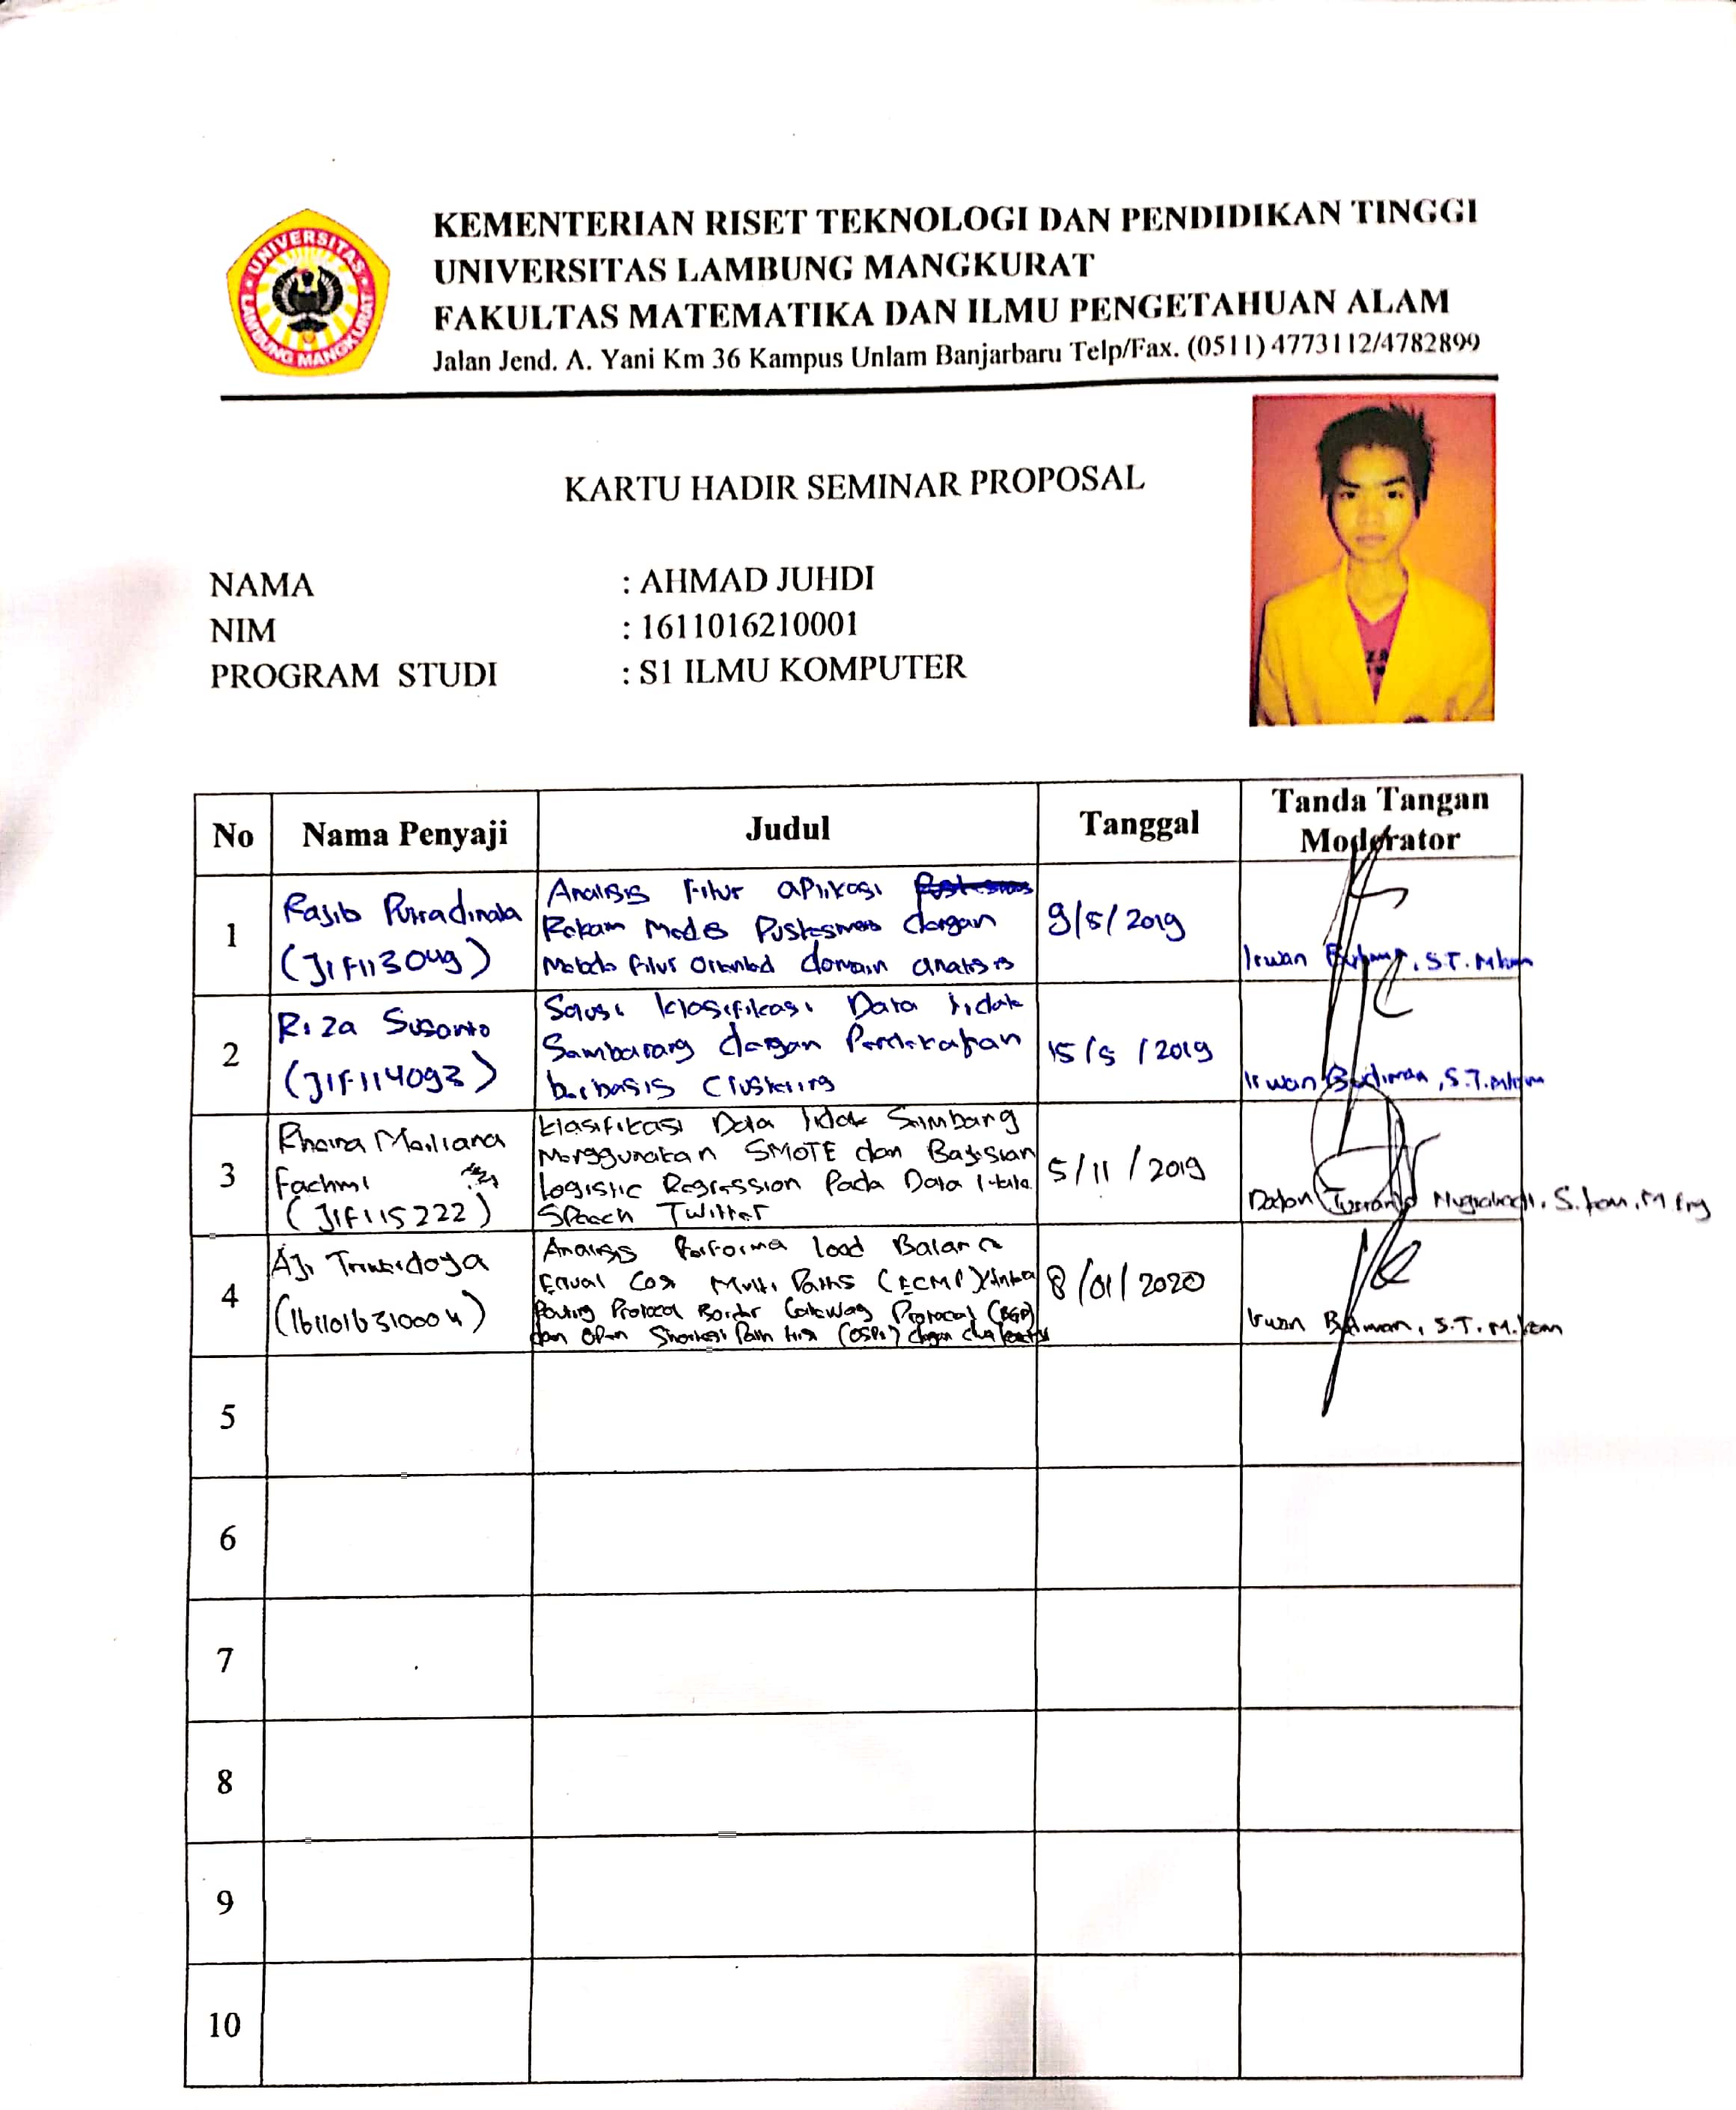 UNIVERSITAS
LAMBUNG MANGKURAT
KEMENTERIAN RISET TEKNOLOGI DAN PENDIDIKAN TINGGI
UNIVERSITAS LAMBUNG MANGKURAT
FAKULTAS MATEMATIKA DAN ILMU PENGETAHUAN ALAM
Jalan Jend. A. Yani Km 36 Kampus Unlam Banjarbaru Telp/Fax. (0511) 4773112/4782899
KARTU HADIR SEMINAR PROPOSAL
NAMA : AHMAD JUHDI
NIM : 1611016210001
PROGRAM STUDI : S1 ILMU KOMPUTER
No Nama Penyaji Judul Tanggal Tanda Tangan
Moderator
1
Rajib Putradinata
(J1F113049)
Analisis Fitur aplikasi
Rekam Medis Puskesmas dengan
Metode Fitur Oriented domain analisis
9/5/2019
Irwan Budiman, S.T. M.kom
2
Riza Susanto
(J1F114093)
Solusi klasifikasi Data tidak
Seimbang dengan Pendekatan
berbasis Clustering
15/5/2019
Irwan Budiman, S.T. M.kom
3
Maliana
Fachmi
(J1F115222)
klasifikasi Data tidak Seimbang
Menggunakan SMOTE dan Bayesian
Logistic Regression Pada Data Hate
Speech Twitter
5/11/2019
Nugrahadi, S.kom, M.Eng
4
Aji
(1611016310004)
Analisis Performa Load Balance
Equal Cost Multi Paths (ECMP)
Routing Protocol Border Gateway Protocol (BGP)
dan Open Shortest Path First (OSPF) dengan
8/01/2020
Irwan Budiman, S.T. M.kom
5
6
7
8
9
10